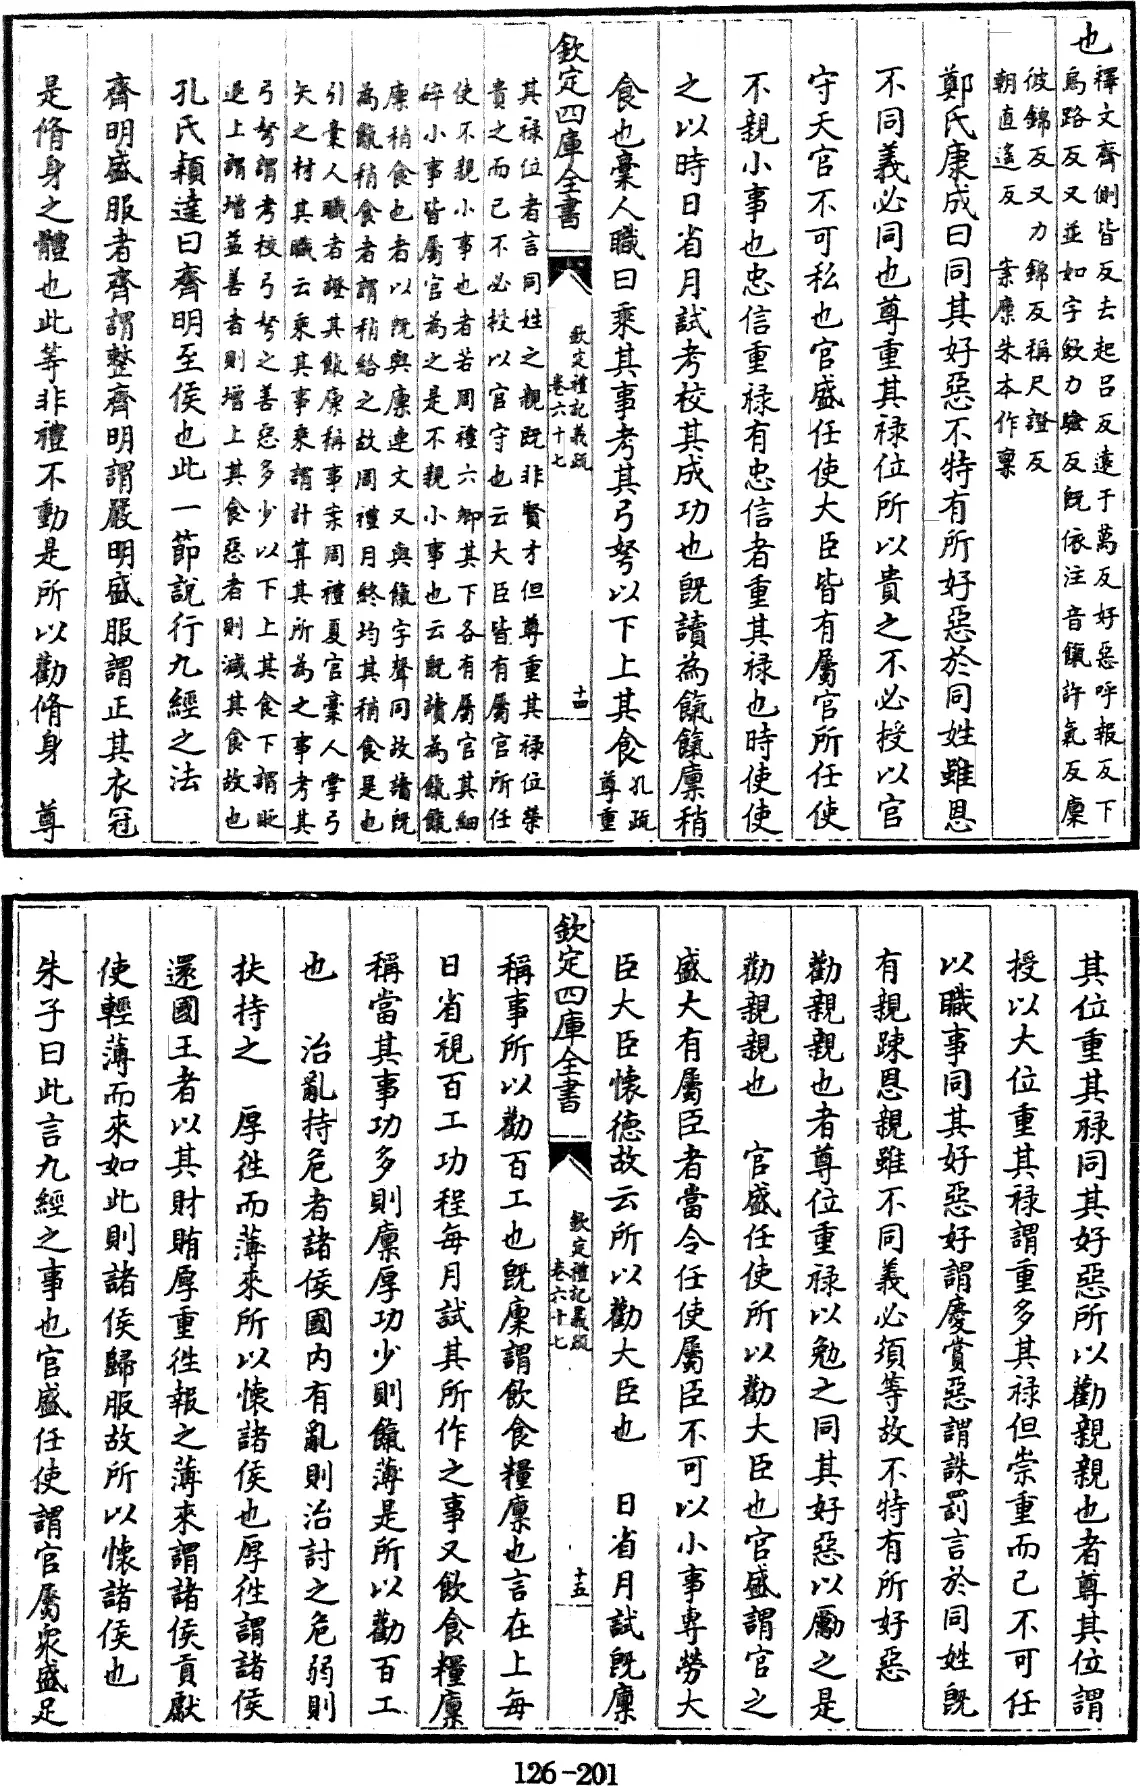 也釋文齊側皆反去起呂反遠于萬反好惡呼報反下
烏路反又並如字斂力驗反旣依注音餼許氣反廩
彼錦反又力錦反稱尺證反
朝直遙反　案廩朱本作稟
鄭氏康成曰同其好惡不特有所好惡於同姓雖恩
不同義必同也尊重其祿位所以貴之不必授以官
守天官不可私也官盛任使大臣皆有屬官所任使
不親小事也忠信重祿有忠信者重其祿也時使使
之以時日省月試考校其成功也旣讀為餼餼廩稍
食也稾人職曰乘其事考其弓弩以下上其食孔疏
尊重
欽定四庫全書
欽定禮記義疏
卷六十七
十四
其祿位者言同姓之親旣非賢才但尊重其祿位榮
貴之而已不必授以官守也云大臣皆有屬官所任
使不親小事也者若周禮六卿其下各有屬官其細
碎小事皆屬官為之是不親小事也云旣讀為餼餼
廩稍食也者以旣與廩連文又與餼字聲同故讀旣
為餼稍食者謂稍給之故周禮月終均其稍食是也
引稾人職者證其餼廩稱事案周禮夏官稾人掌弓
矢之材其職云乘其事乘謂計算其所為之事考其
弓弩謂考校弓弩之善惡多少以下上其食下謂貶
退上謂增益善者則增上其食惡者則減其食故也
孔氏穎達曰齊明至侯也此一節說行九經之法
齊明盛服者齊謂整齊明謂嚴明盛服謂正其衣冠
是脩身之體也此等非禮不動是所以勸脩身　尊
其位重其祿同其好惡所以勸親親也者尊其位謂
授以大位重其祿謂重多其祿但崇重而已不可任
以職事同其好惡好謂慶賞惡謂誅罰言於同姓旣
有親踈恩親雖不同義必須等故不特有所好惡
勸親親也者尊位重祿以勉之同其好惡以勵之是
勸親親也　官盛任使所以勸大臣也官盛謂官之
盛大有屬臣者當令任使屬臣不可以小事專勞大
臣大臣懷德故云所以勸大臣也　日省月試旣廩
欽定四庫全書
欽定禮記義疏
卷六十七
十五
稱事所以勸百工也旣廩謂飲食糧廩也言在上每
日省視百工功程每月試其所作之事又飲食糧廩
稱當其事功多則廩厚功少則餼薄是所以勸百工
也　治亂持危者諸侯國内有亂則治討之危弱則
扶持之　厚徃而薄來所以懷諸侯也厚徃謂諸侯
還國王者以其財賄厚重徃報之薄來謂諸侯貢獻
使輕薄而來如此則諸侯歸服故所以懷諸侯也
朱子曰此言九經之事也官盛任使謂官屬衆盛足
126-201